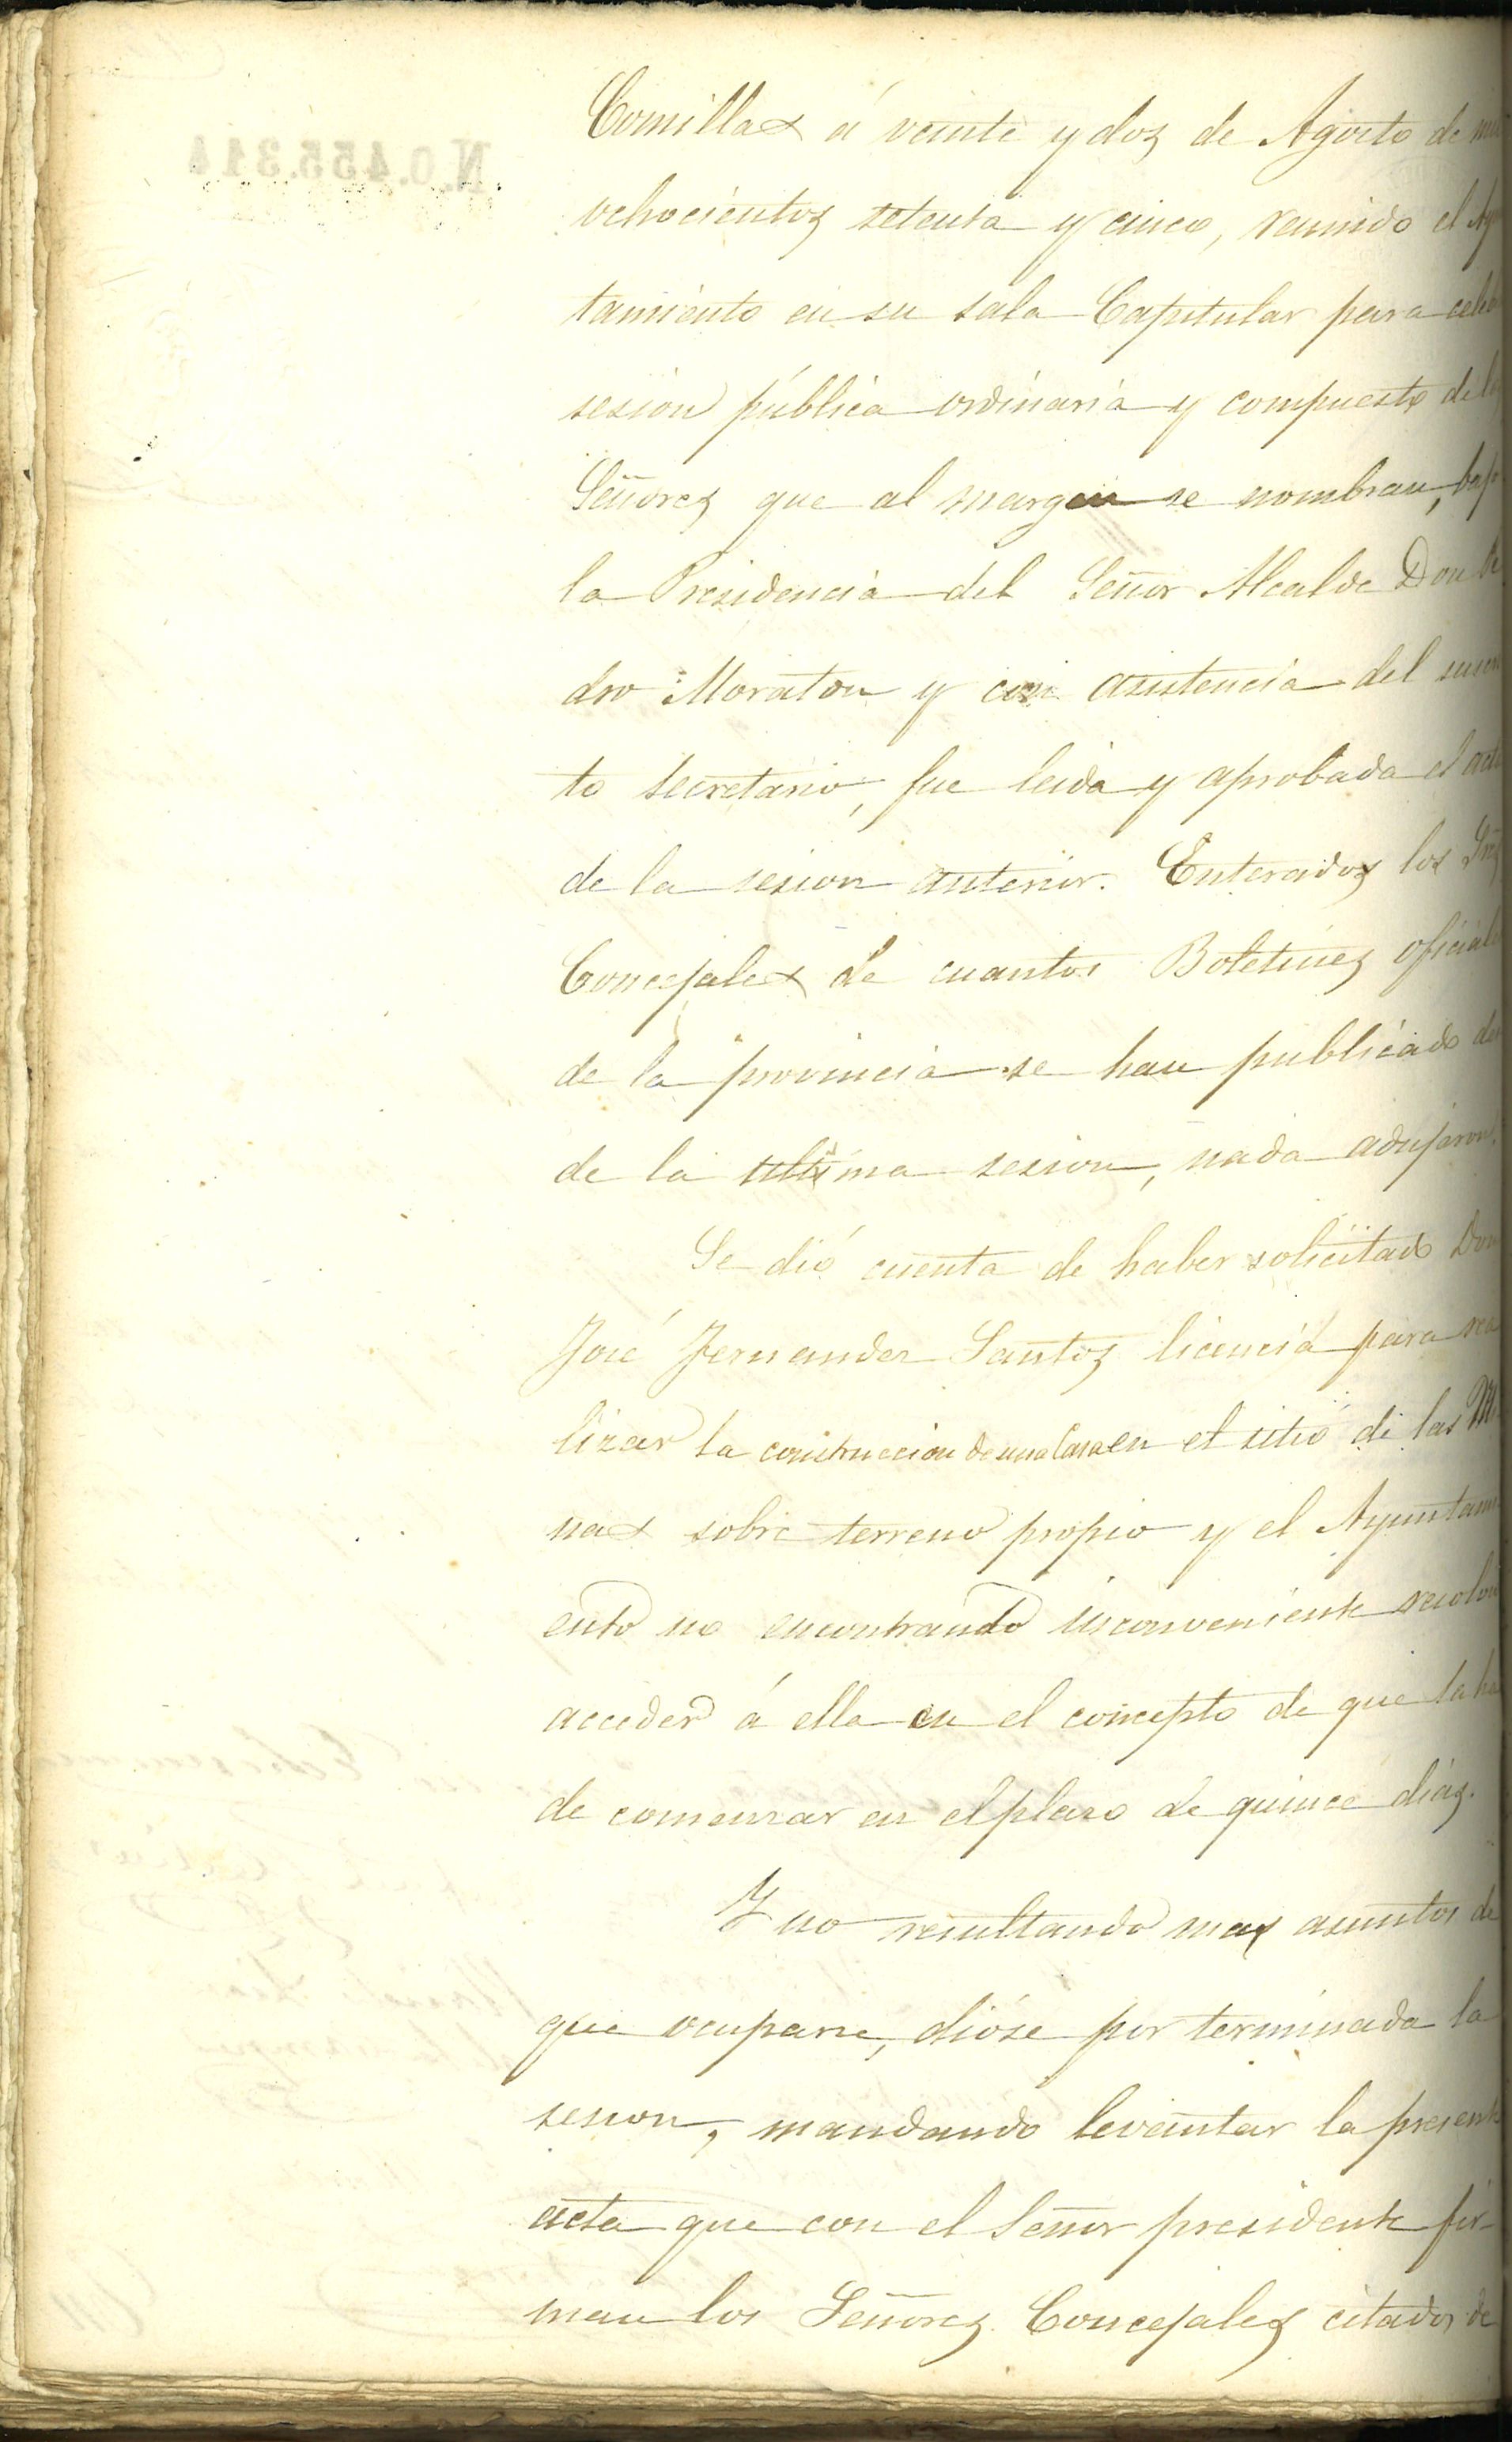 N.0.455.314
Comillas á veinte y dos de Agosto de mil
ochocientos setenta y cinco, reunido el Ay
tamiento en su sala Capitular para cele
sesion pública ordinaria y compuesto de los
Señores que al margen se nombran, bajo
la Presidencia del Señor Alcalde Don
dro Moraton y con asistencia del
to secretario, fue leida y aprobada el acta
de la sesion anterior. Enterados los Sres
Concejales de cuantos Boletines oficial
de la provincia se han publicado des
de la ultima sesion, nada adujeron.
Se dió cuenta de haber solicitado Don
José Fernandez Santos licencia para rea
lizar la construccion de una Casa en el sitio de las M
nas sobre terreno propio y el Ayuntami
ento no encontrando inconveniente resolvió
acceder á ella en el concepto de que la ha
de comenzar en el plazo de quince dias.
Y no resultando mas asuntos de
que ocuparse, dióse por terminada la
sesion, mandando levantar la presente
acta que con el Señor presidente fir-
man los Señores Concejales citados de